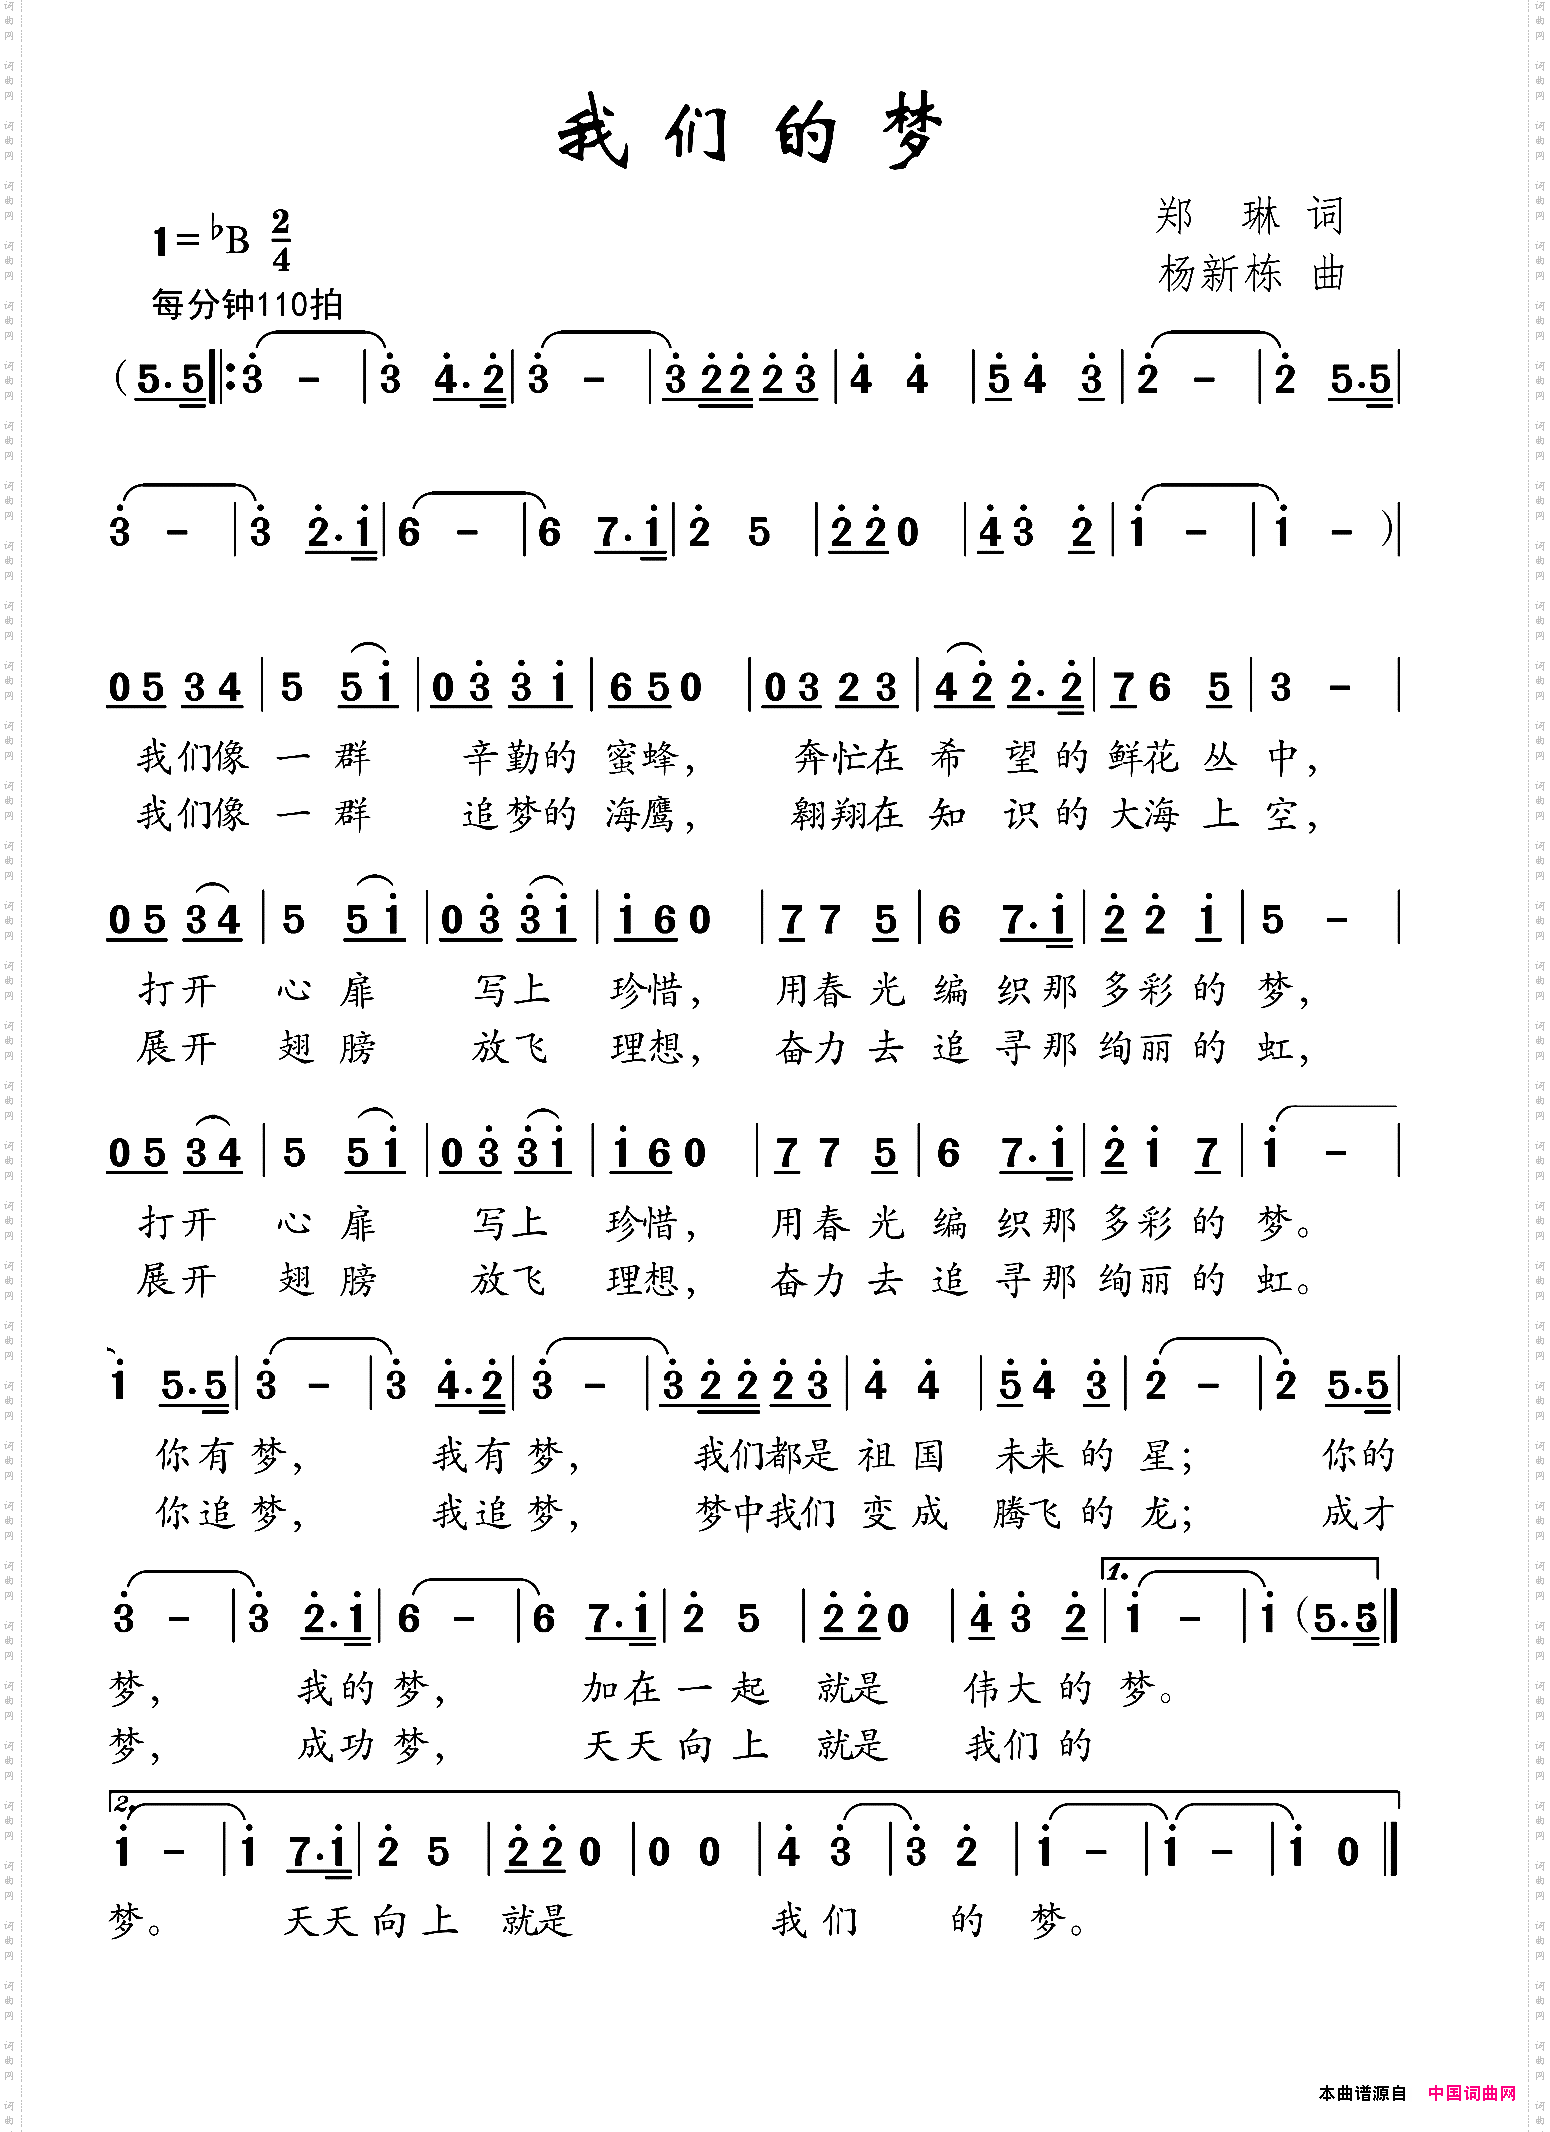 我们的梦
1=♭B 2/4
郑 琳 词
杨新栋 曲
每分钟110拍
(5.5‖:3 - |3 4.2|3 - |3 2 2 2 3|4 4 |5 4 3|2 - |2 5.5|
3 - |3 2.1|6 - |6 7.1|2 5 |2 2 0 |4 3 2|1 - |1 - )|
0 5 3 4|5 5 1|0 3 3 1|6 5 0 |0 3 2 3|4 2 2.2|7 6 5|3 - |
我们像一群 辛勤的蜜蜂, 奔忙在希望的鲜花丛中,
我们像一群 追梦的海鹰, 翱翔在知识的大海上空,
0 5 3 4|5 5 1|0 3 3 1|1 6 0 |7 7 5|6 7.1|2 2 1|5 - |
打开心扉 写上珍惜, 用春光编织那多彩的梦,
展开翅膀 放飞理想, 奋力去追寻那绚丽的虹,
0 5 3 4|5 5 1|0 3 3 1|1 6 0 |7 7 5|6 7.1|2 1 7|1 - |
打开心扉 写上珍惜, 用春光编织那多彩的梦。
展开翅膀 放飞理想, 奋力去追寻那绚丽的虹。
1 5.5|3 - |3 4.2|3 - |3 2 2 2 3|4 4 |5 4 3|2 - |2 5.5|
你有梦, 我有梦, 我们都是祖国未来的星; 你的
你追梦, 我追梦, 梦中我们变成腾飞的龙; 成才
1.
3 - |3 2.1|6 - |6 7.1|2 5 |2 2 0 |4 3 2|1 - |1 (5.5:‖
梦, 我的梦, 加在一起就是伟大的梦。
梦, 成功梦, 天天向上就是我们的
2.
1 - |1 7.1|2 5 |2 2 0 |0 0 |4 3 |3 2 |1 - |1 - |1 0 ‖
梦。 天天向上就是 我们的梦。
本曲谱源自 中国词曲网